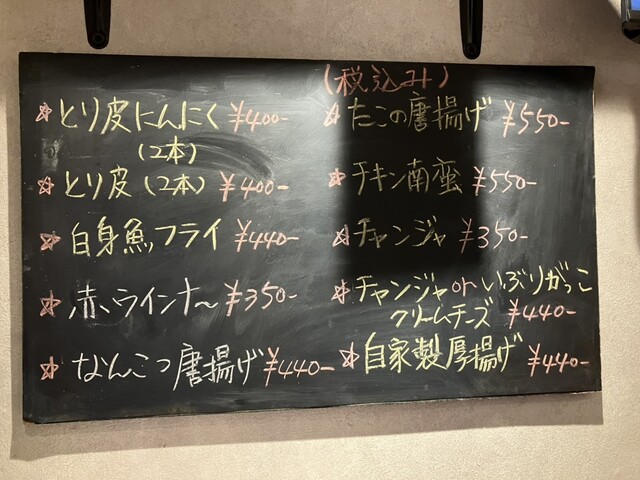 (税込み)
☆とり皮にんにく ¥400-
(2本)
☆とり皮(2本) ¥400-
☆白身魚フライ ¥440-
☆赤ウインナー ¥350-
☆なんこつ唐揚げ ¥440-
☆たこの唐揚げ ¥550-
☆チキン南蛮 ¥550-
☆チャンジャ ¥350-
☆チャンジャorいぶりがっこ
クリームチーズ ¥440-
☆自家製厚揚げ ¥440-